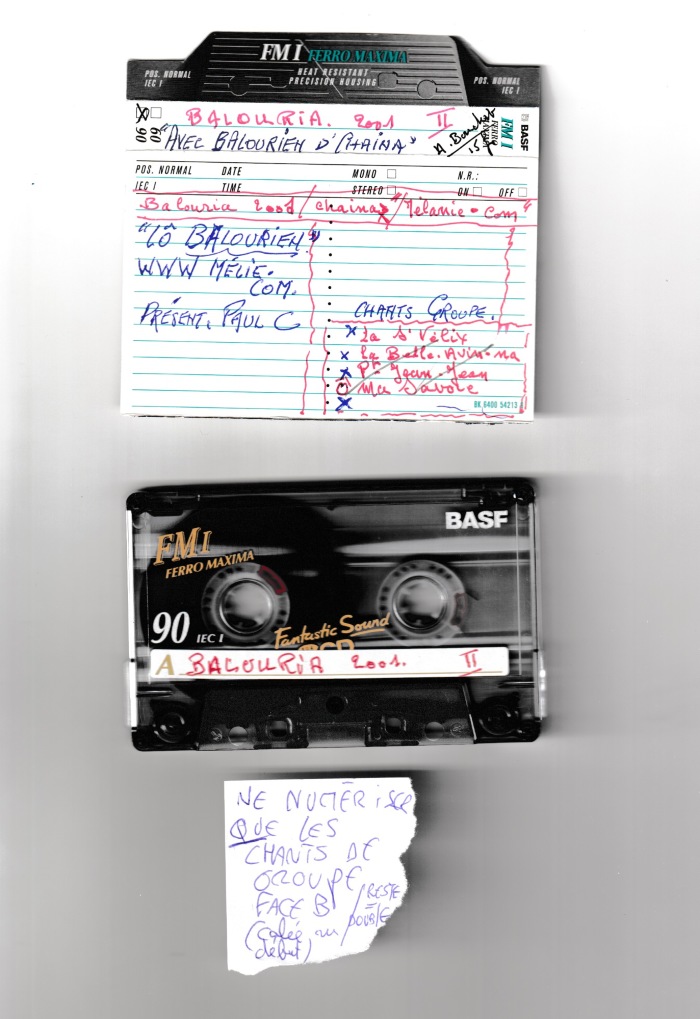 FM I FERRO MAXIMA
HEAT RESISTANT
PRECISION HOUSING
POS. NORMAL
IEC I
POS. NORMAL
IEC I
60
90
BALOURIA. 2001 II
"AVEC BALOURIEN D'CHAINA"
FM I
FERRO
MAXIMA
BASF
POS. NORMAL DATE MONO N.R.:
IEC I TIME STEREO ON OFF
Balouria 2001/chaina/"Mélanie.com"
"LÔ BALOURIEN"
WWW MÉLIE.
COM.
PRÉSENT. PAUL C
CHANTS GROUPE.
x La St Félix
x La Belle.
x Pt Jean-Jean
Ma Savoie
x
BK 6400 54213
BASF
FM I
FERRO MAXIMA
90 IEC I
Fantastic Sound
A BALOURIA 2001. II
NE NUMÉRISER
QUE LES
CHANTS DE
GROUPE
FACE B / RESTE
= DOUBLE
(calée au
début)